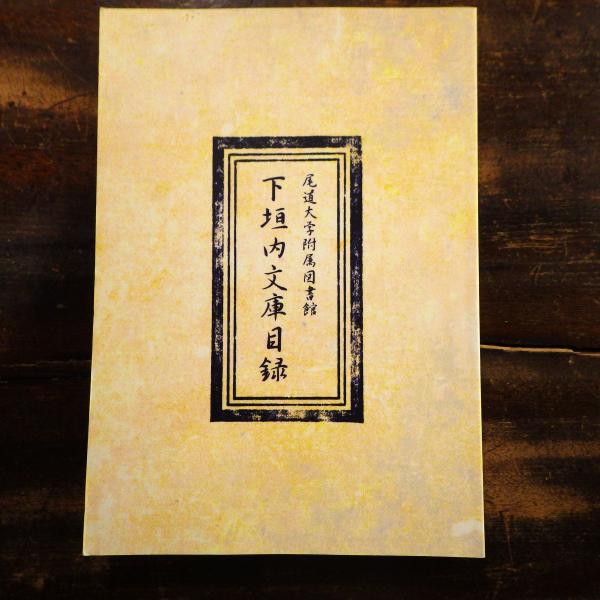 尾道大学附属図書館
下垣内文庫目録